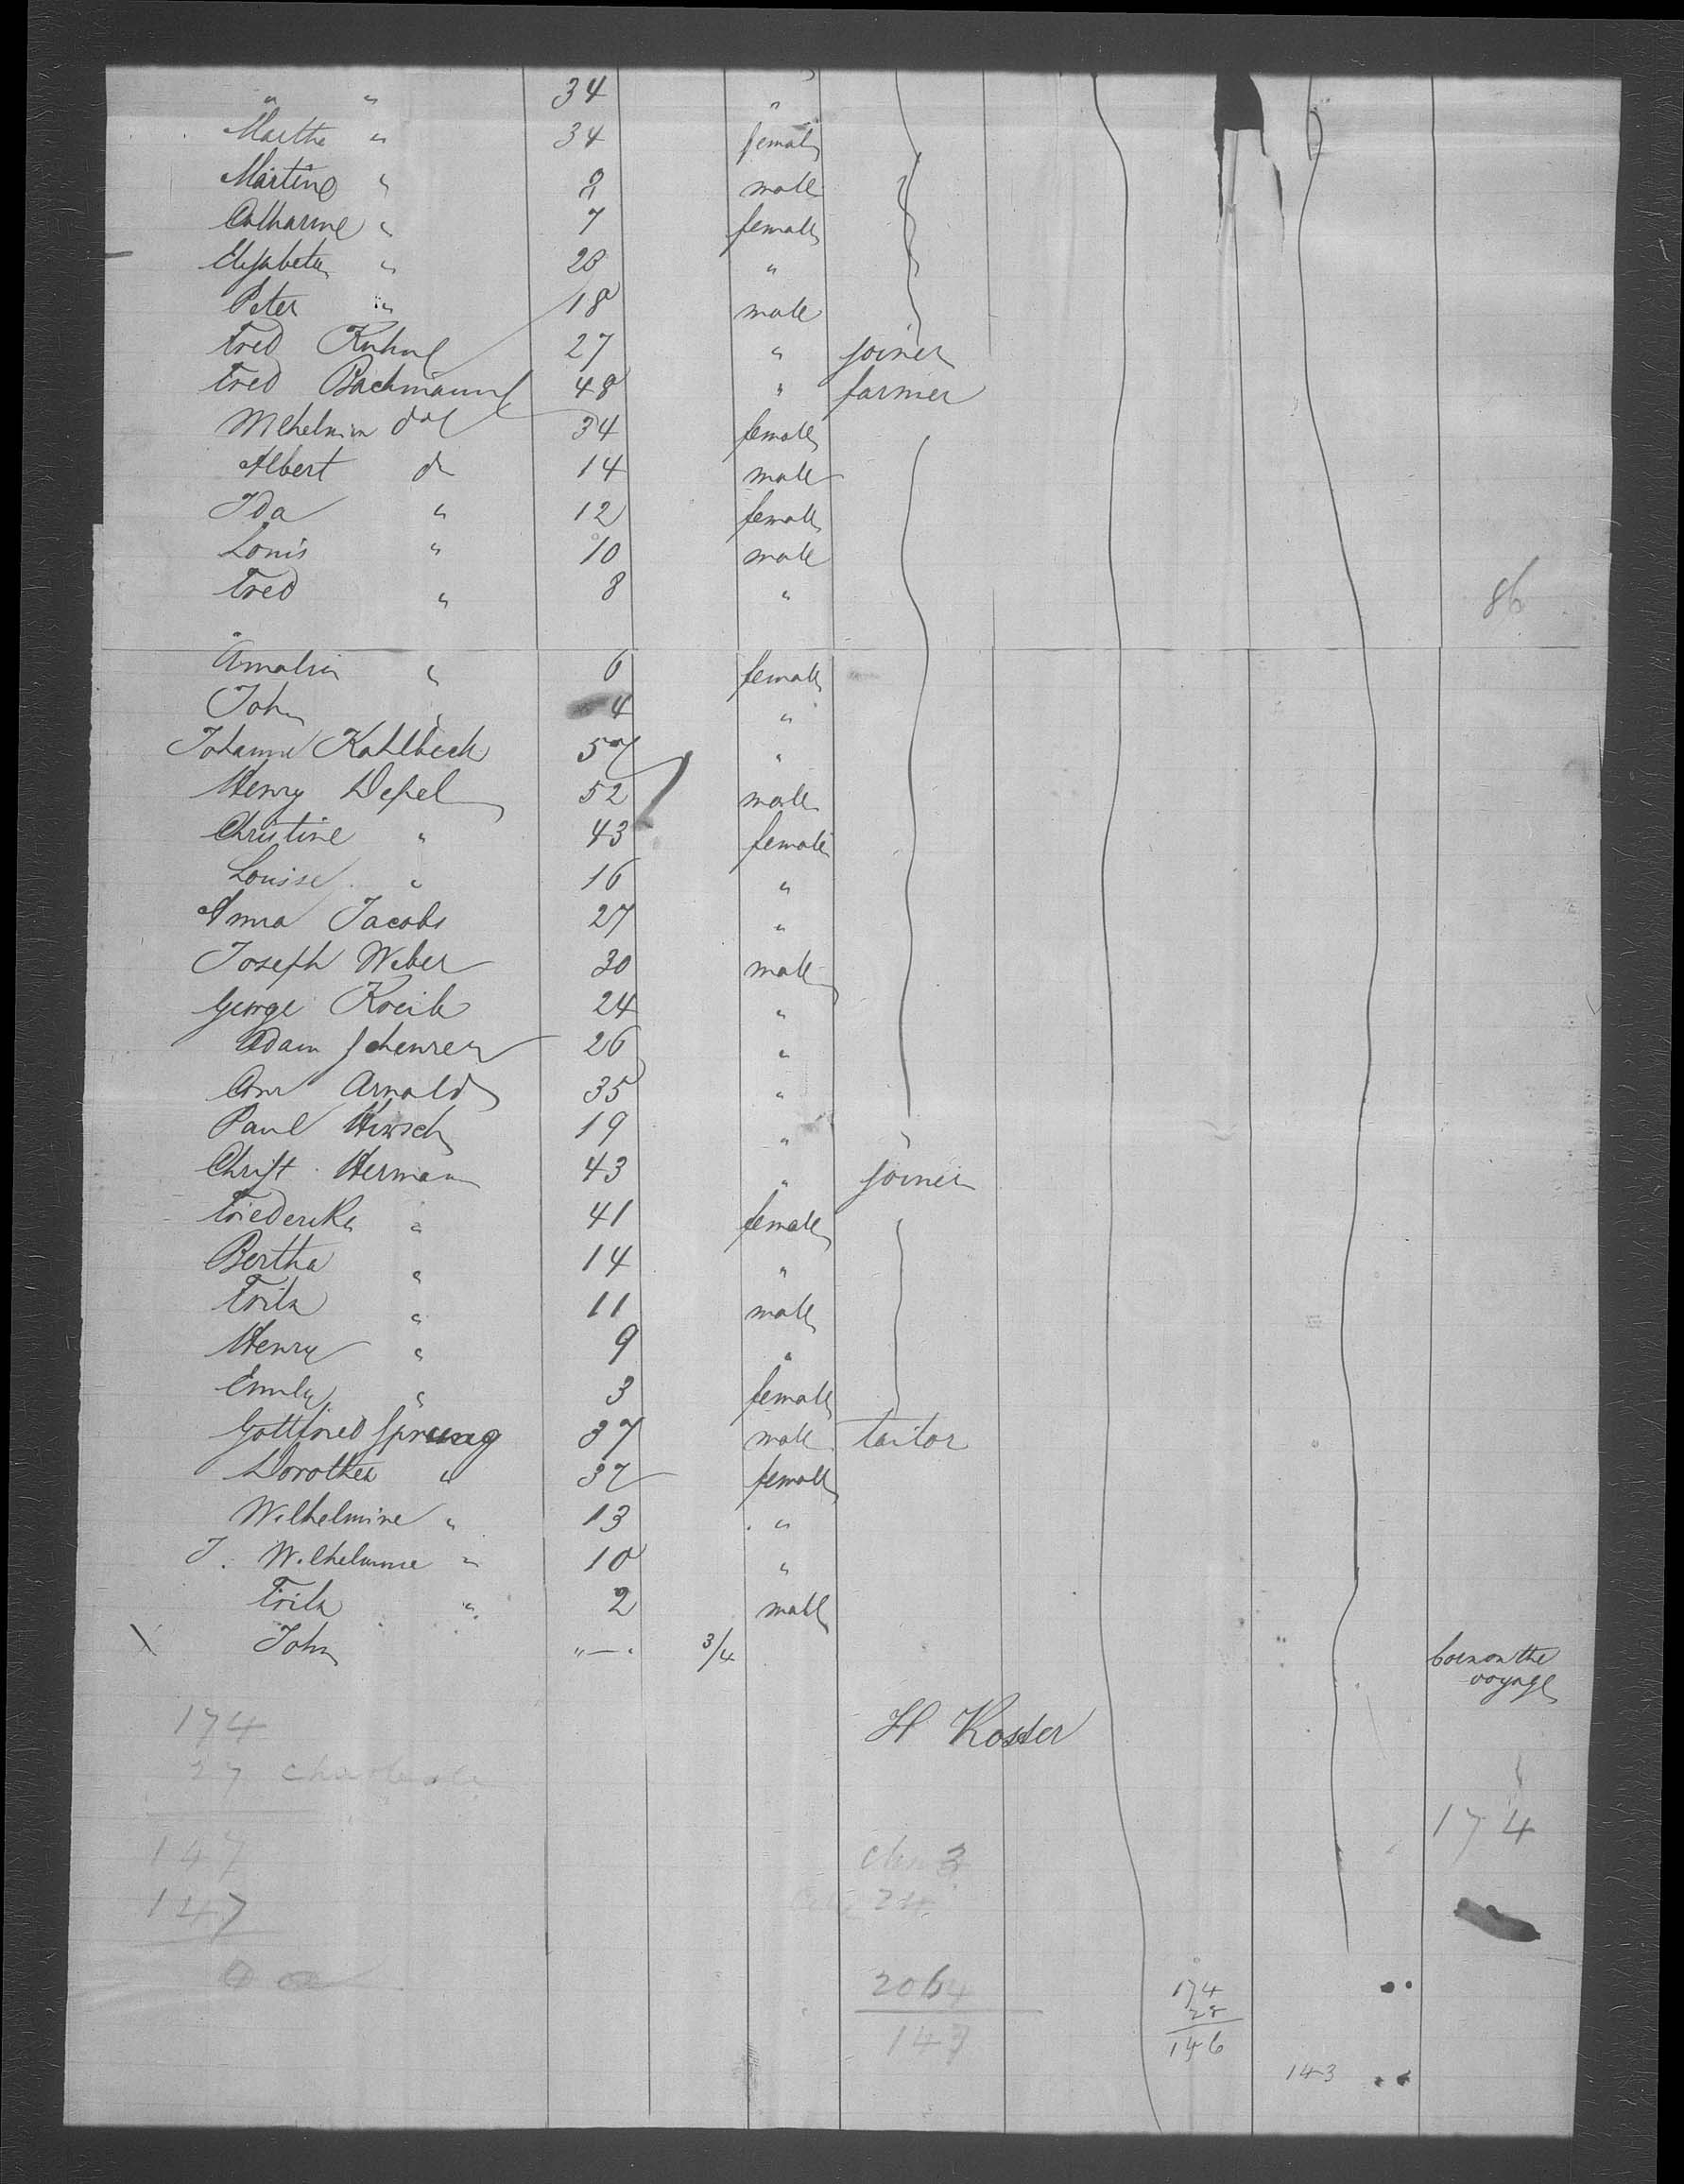 " " 34 "
Martha " 34 female
Martine " 9 male
Catharine " 7 female
Elisabeta " 20 "
Peter " 18 male
Fred Kuhne 27 " joiner
Fred Bachmann 48 " farmer
Wilhelmin do 34 female
Albert do 14 male
Ida " 12 female
Louis " 10 male
Fred " 8 "
86
Amalia " 6 female
John " 4 "
Johanne Kahlbeck 57 "
Henry Depel 52 male
Christine " 43 female
Louise " 16 "
Anna Jacobs 27 "
Joseph Weber 30 male
George Kreik 24 "
Adam Schenrer 26 "
Arnold 35 "
Paul Hirsch 19 "
Christ. Herman 43 " joiner
Friederike " 41 female
Bertha " 14 "
Fritz " 11 male
Henry " 9 "
Emily " 3 female
Gottfried Sprung 37 male tailor
Dorothea " 37 female
Wilhelmine " 13 "
J. Wilhelmine " 10 "
Fritz " 2 male
John "—" 3/4 born on the
voyage
H Koster
174
27
174
147
147
3
24
2064
147
174
28
146
143